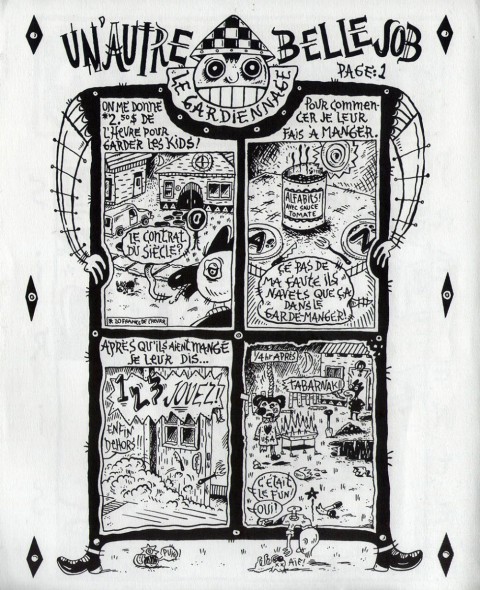 UN'AUTRE BELLE JOB
PAGE:1
LE GARDIENNAGE
ON ME DONNE
$2.50$ DE
L'HEURE POUR
GARDER LES KIDS!
LE CONTRAT
DU SIÈCLE?
POUR COMMEN-
CER JE LEUR
FAIS À MANGER.
ALFABITS!
AVEC SAUCE
TOMATE
A
Z
CE PAS DE
MA FAUTE ILS
NAVETS QUE ÇA
DANS LE
GARDE-MANGER!
APRÈS QU'ILS AIENT MANGÉ
JE LEUR DIS...
1 2 3 JOUEZ??
ENFIN
DEHORS!!
1/4 hr APRÈS
TABARNAK!
C'ÉTAIT
LE FUN!
OUI?
AïE!